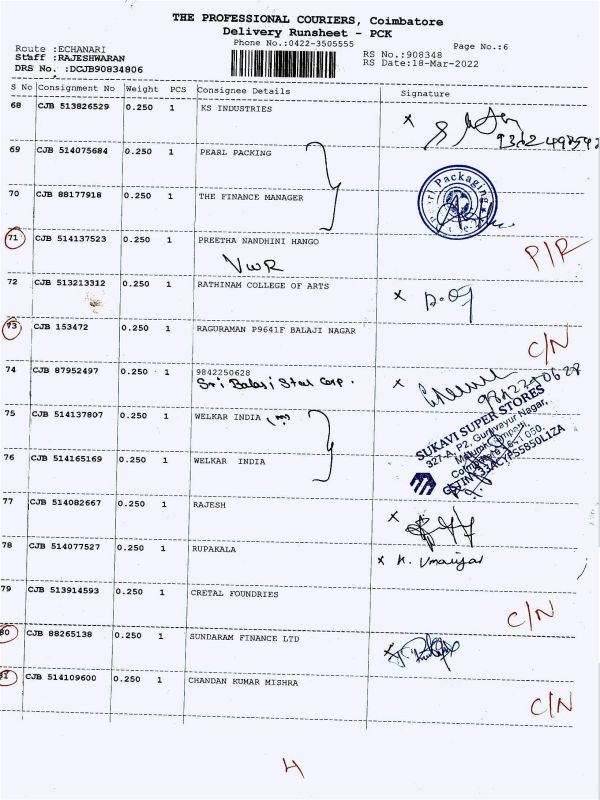 THE PROFESSIONAL COURIERS, Coimbatore
Delivery Runsheet - PCK
Phone No.:0422-3505555
Page No.:6
Route :ECHANARI
Staff :RAJESHWARAN
DRS No. :DCJB90834806
RS No.:908348
RS Date:18-Mar-2022
S No Consignment No Weight PCS Consignee Details Signature
68 CJB 513826529 0.250 1 KS INDUSTRIES x
69 CJB 514075684 0.250 1 PEARL PACKING
70 CJB 88177918 0.250 1 THE FINANCE MANAGER
71 CJB 514137523 0.250 1 PREETHA NANDHINI HANGO P/R
VWR
72 CJB 513213312 0.250 1 RATHINAM COLLEGE OF ARTS x
73 CJB 153472 0.250 1 RAGURAMAN P9641F BALAJI NAGAR C/N
74 CJB 87952497 0.250 1 9842250628 x
Sri Balaji Star Corp. 9842250628
75 CJB 514137807 0.250 1 WELKAR INDIA
SUKAVI SUPER STORES
327-A, P2, Guruvayur Nagar,
76 CJB 514165169 0.250 1 WELKAR INDIA
77 CJB 514082667 0.250 1 RAJESH x
78 CJB 514077527 0.250 1 RUPAKALA x K.
79 CJB 513914593 0.250 1 CRETAL FOUNDRIES C/N
80 CJB 88265138 0.250 1 SUNDARAM FINANCE LTD x
81 CJB 514109600 0.250 1 CHANDAN KUMAR MISHRA C/N
H